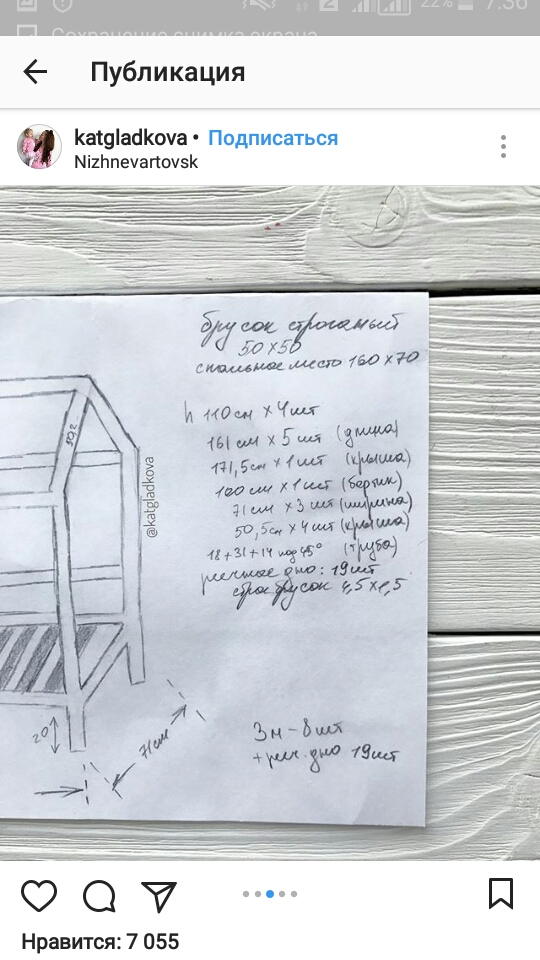 22% 7:36
Сохранение снимка экрана
Публикация
katgladkova • Подписаться
Nizhnevartovsk
брусок строганый
50x50
спальное место 160x70
h 110см x 4шт
161см x 5шт (длина)
171,5см x 1шт (крыша)
100см x 1шт (бортик)
71см x 3шт (ширина)
50,5см x 4шт (крыша)
18+31+14 под 45° (труба)
реечное дно: 19шт
строг брусок 4,5x1,5
@katgladkova
20
71см
3м – 8шт
+ реч. дно 19шт
Нравится: 7 055